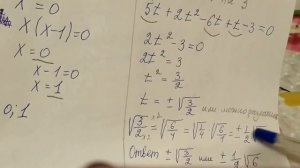 x = 0
x(x-1)=0
x = 0
x-1=0
x = 1
0;1
5t + 2t² - 6t + t - 3 = 0
2t² - 3 = 0
2t² = 3
t² = 3/2
t = ± √(3/2) или можно
√(3/2) = √(6/4) = √(1/4) · √(6/4) = ± 1/2
Ответ ± √(3/2) или ± 1/2 √6